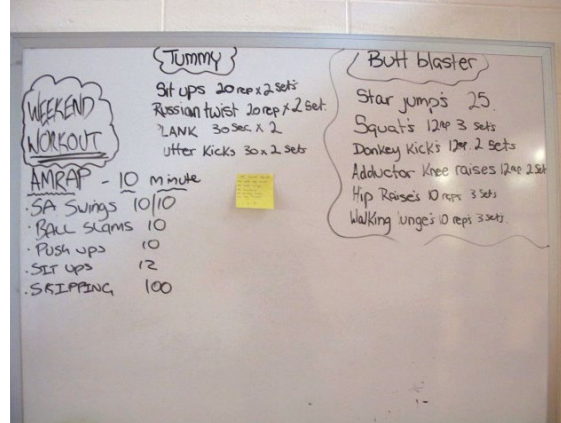 WEEKEND
WORKOUT
AMRAP - 10 minute
· SA Swings 10/10
· BALL SLAMS 10
· PUSH UPS 10
· SIT UPS 12
· SKIPPING 100
Tummy
Sit ups 20 rep x 2 Sets
Russian twist 20 rep x 2 Set.
LANK 30 Sec x 2
utter Kicks 30 x 2 Sets
Butt blaster
Star jump's 25.
Squat's 12 rep 3 sets
Donkey Kick's 12 rep 2 sets
Adductor Knee raises 12 rep 2 Set
Hip Raise's 10 reps 3 Sets
Walking lunge's 10 rep's 3 Sets.